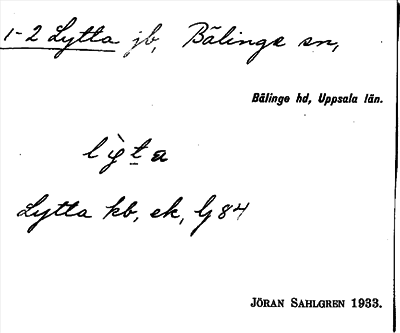 1-2 Lytta jb, Bälinge sn,
Bälinge hd, Uppsala län.
lỳta
Lytta kb, ek, lj 84
JÖRAN SAHLGREN 1933.